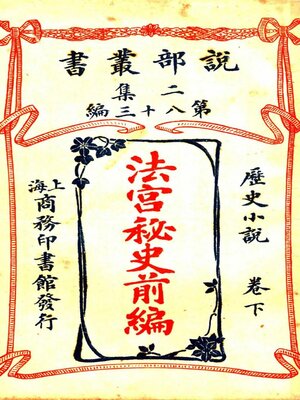 說部叢書
二集
第八十三編
歷史小說 卷下
法宮秘史前編
上海商務印書館發行